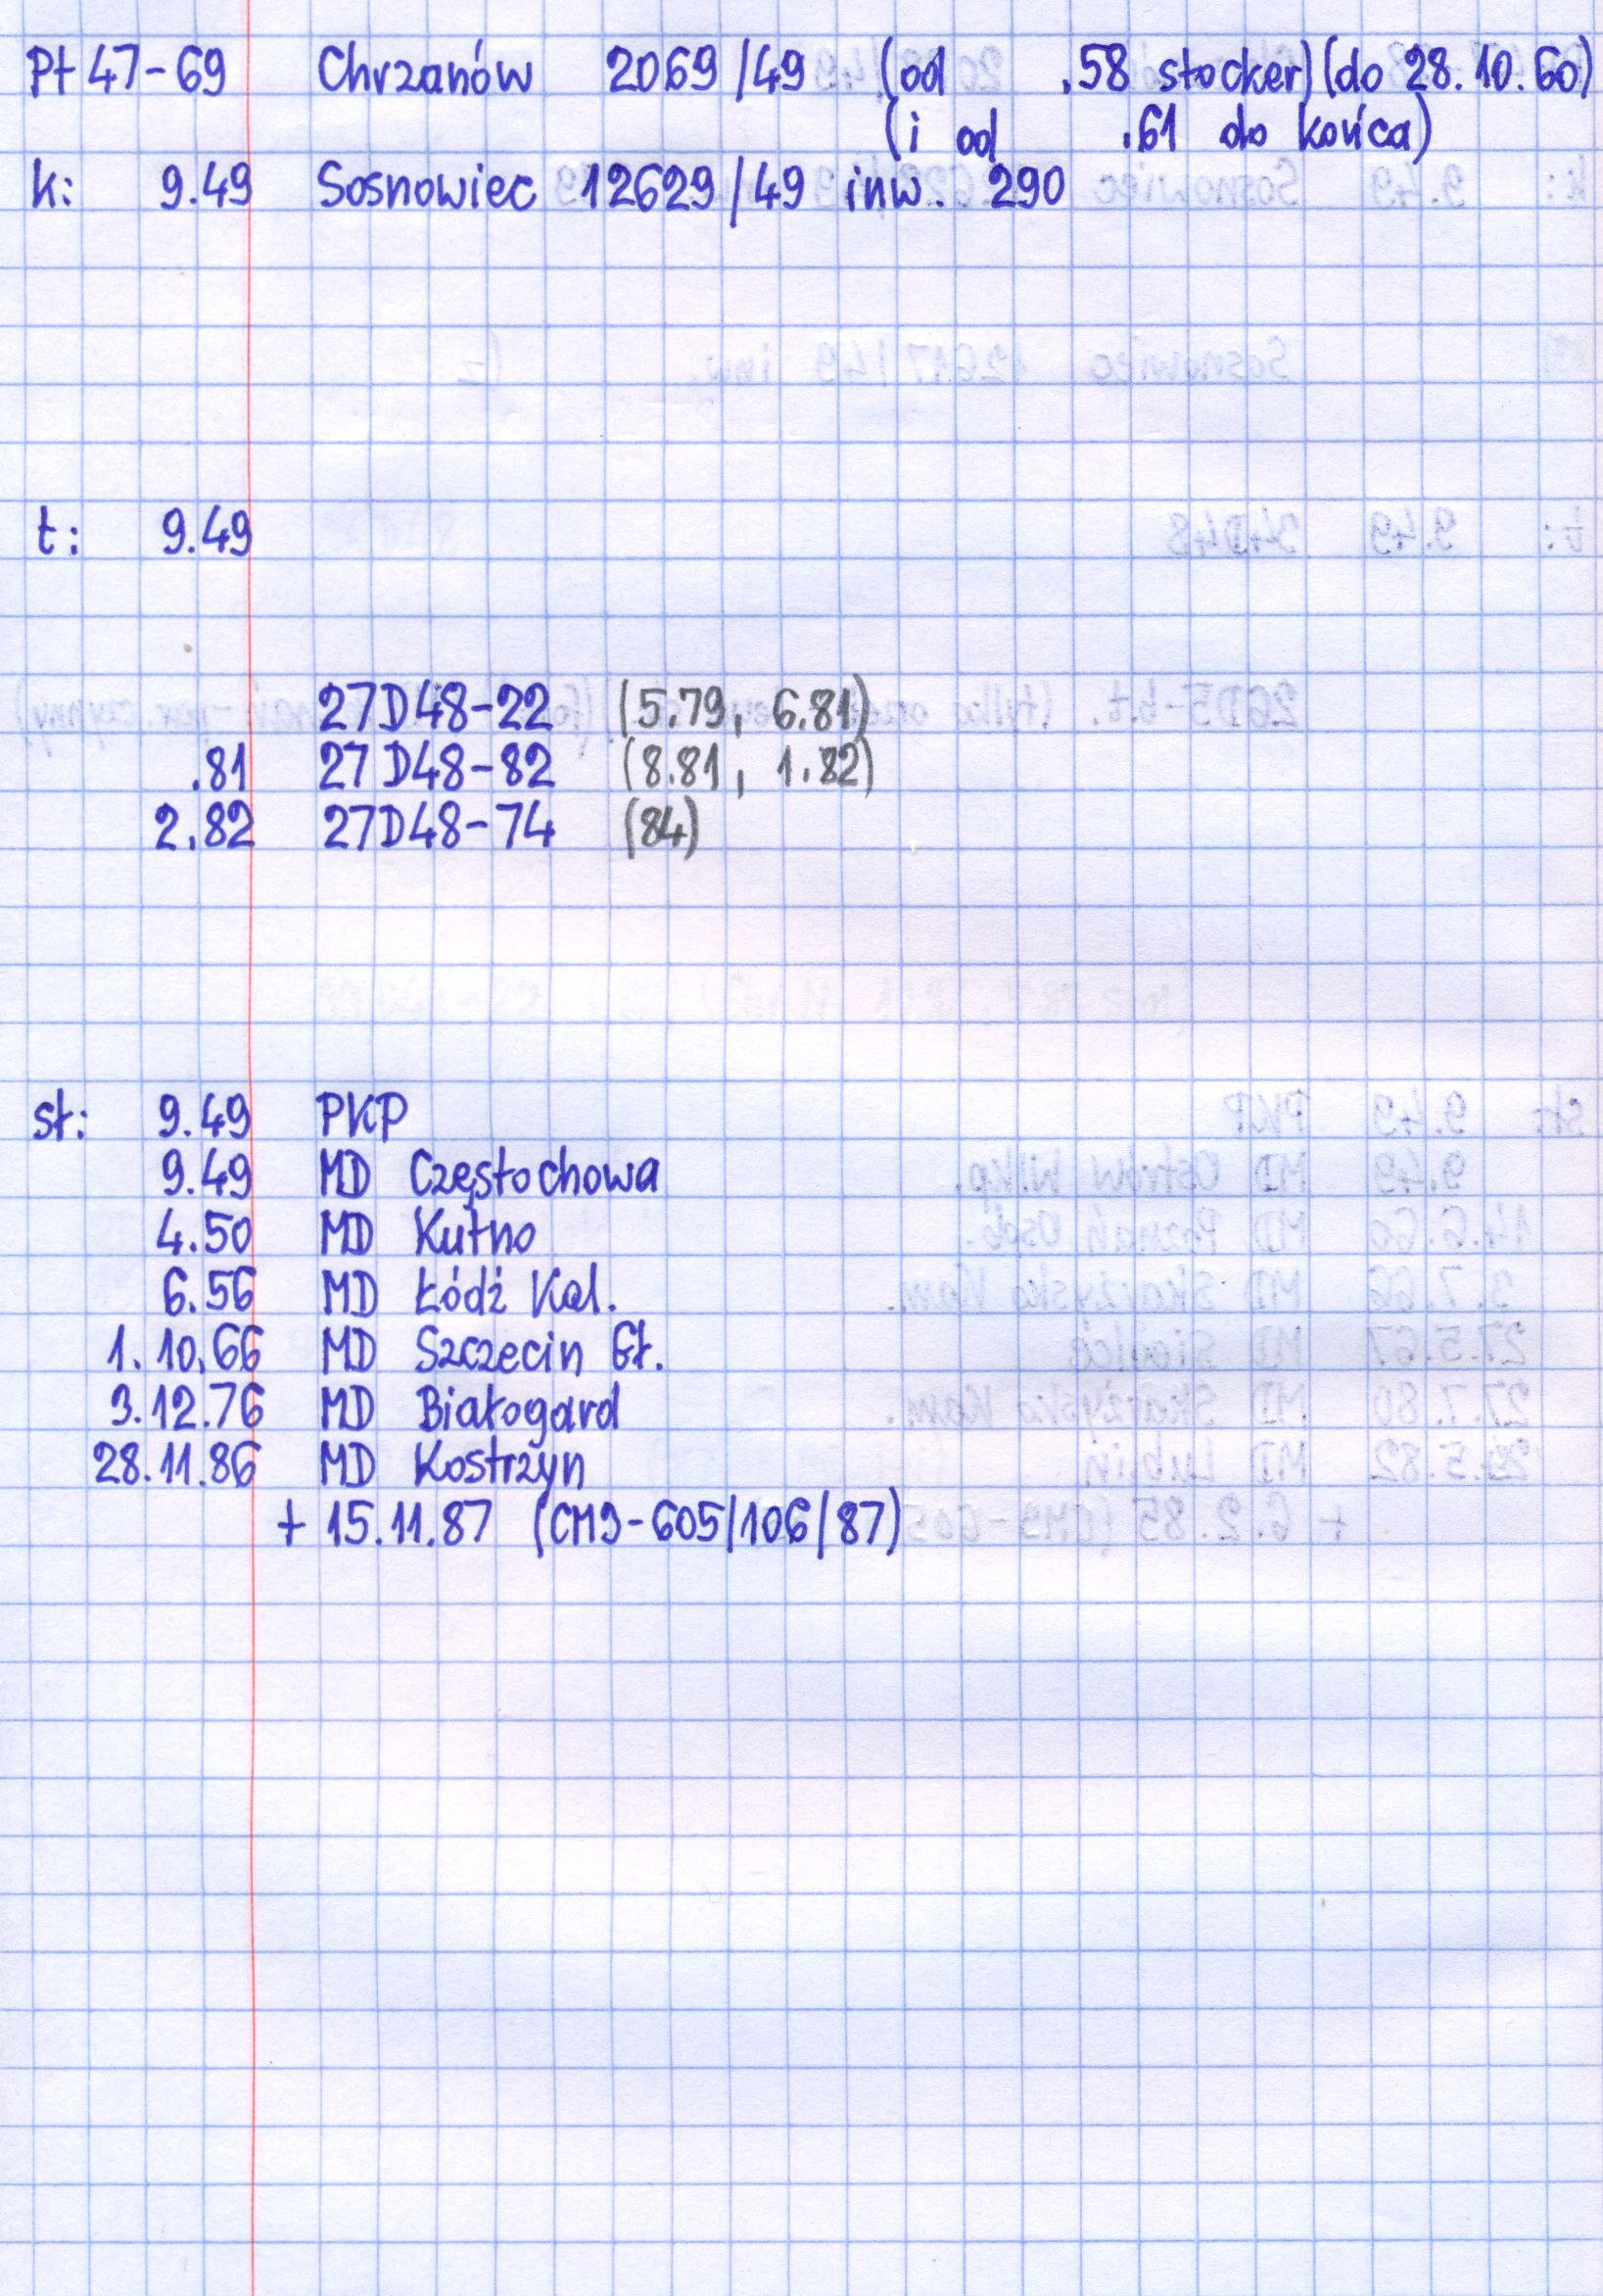 Pt 47-69 Chrzanów 2069/49 (od .58 stocker) (do 28.10.60)
(i od .61 do końca)
k: 9.49 Sosnowiec 12629/49 inw. 290
t: 9.49
27D48-22 (5.79, 6.81)
.81 27D48-82 (8.81, 1.82)
2.82 27D48-74 (84)
sł: 9.49 PKP
9.49 MD Częstochowa
4.50 MD Kutno
6.56 MD Łódź Kal.
1.10.66 MD Szczecin Gł.
3.12.76 MD Białogard
28.11.86 MD Kostrzyn
+ 15.11.87 (CM9-605/106/87)